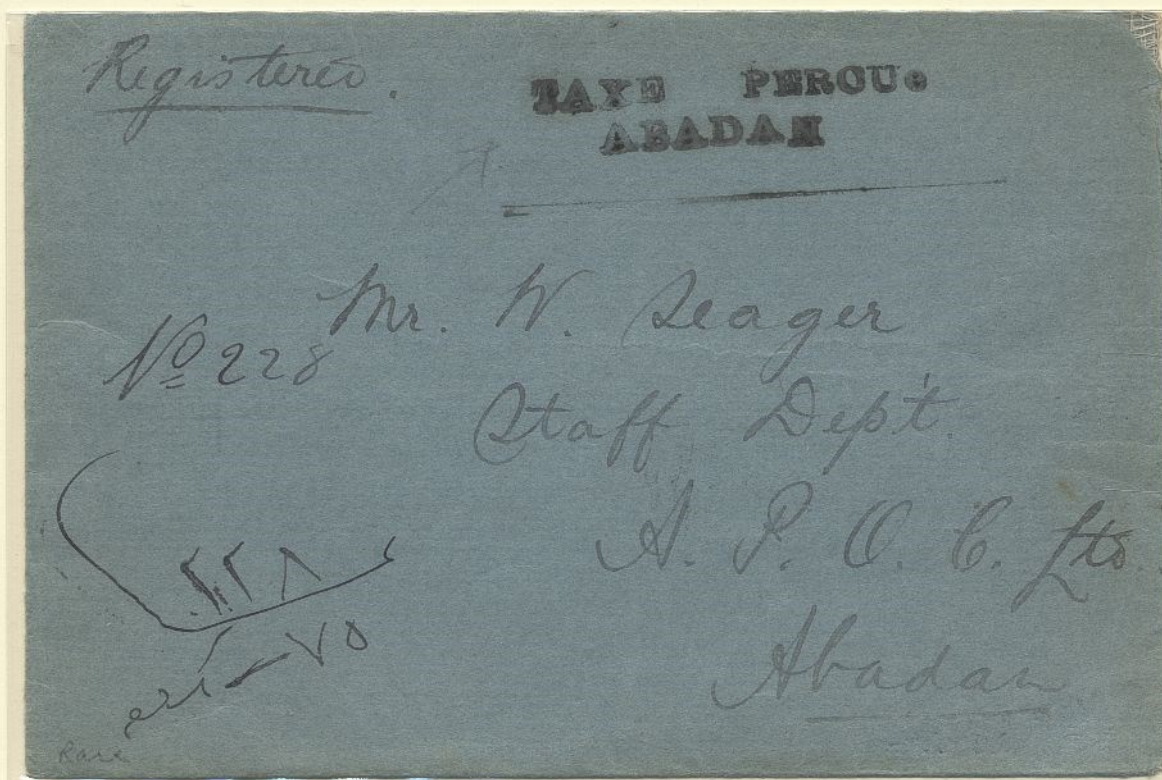 Registered.
TAXE PERCUe
ABADAN
Mr. W. Seager
No 228
Staff Dep't.
A. P. O. C. Ltd.
Abadan
٢٢٨
٧٥
Rare